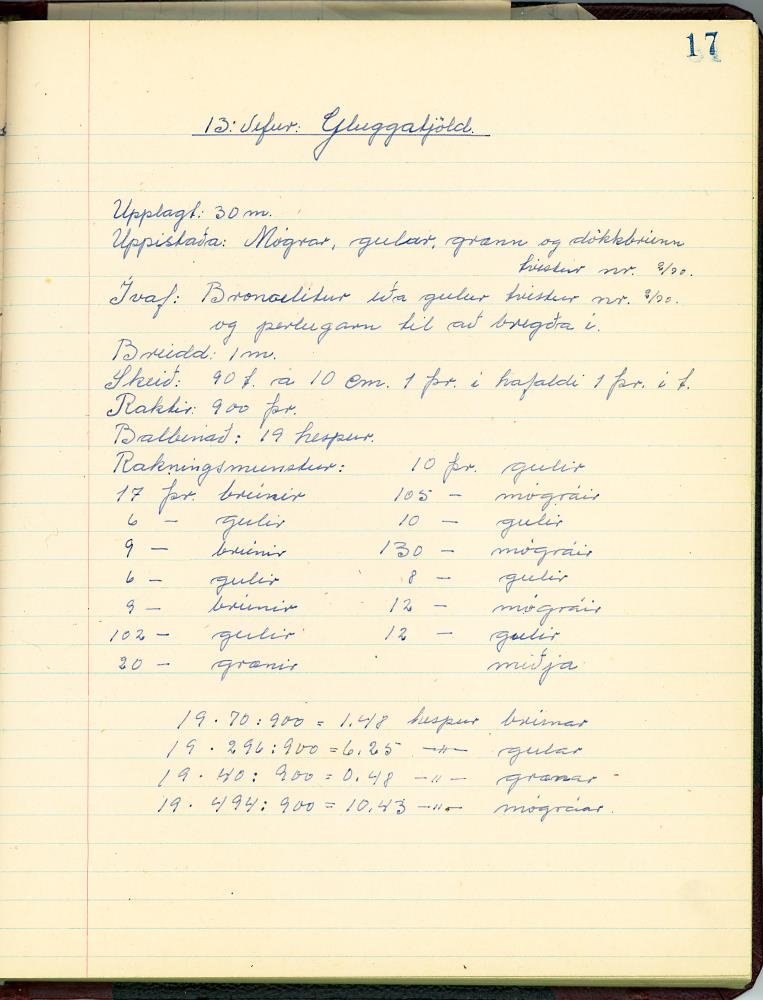 17
13: Vefur: Gluggatjöld.
Upplagt: 30 m.
Uppistaða: Mógrár, gular, grænn og dökkbrúnn
tvistur nr. 8/20.
Ívaf: Broncelitur eða gulur tvistur nr. 8/20.
og perlugarn til að bregða í.
Breidd: 1 m.
Skeið: 90 t. á 10 cm. 1 þr. í hafaldi 1 þr. í t.
Raktir: 900 þr.
Balbínað: 19 hespur.
Rakningsmunstur: 10 þr. gulir
17 þr. brúnir 105 — mógráir
6 — gulir 10 — gulir
9 — brúnir 130 — mógráir
6 — gulir 8 — gulir
9 — brúnir 12 — mógráir
102 — gulir 12 — gulir
20 — grænir miðja
19 · 70 : 900 = 1.48 hespur brúnar
19 · 296 : 900 = 6.25 —"— gular
19 · 40 : 900 = 0.48 —"— grænar
19 · 494 : 900 = 10.43 —"— mógráar.